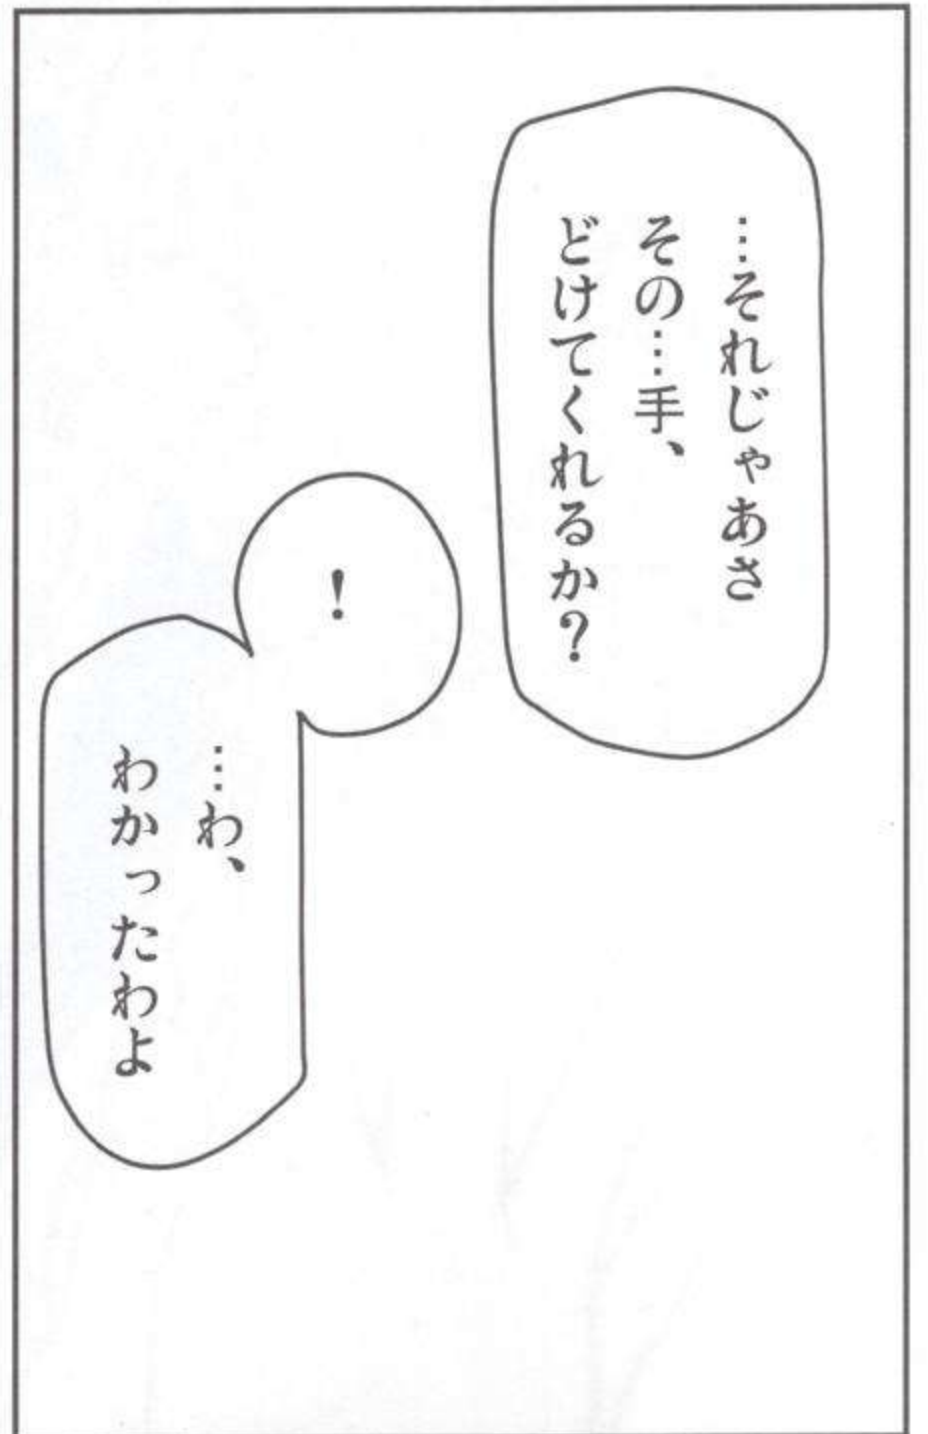 …それじゃあさ
その…手、
どけてくれるか?
!
…わ、
わかったわよ